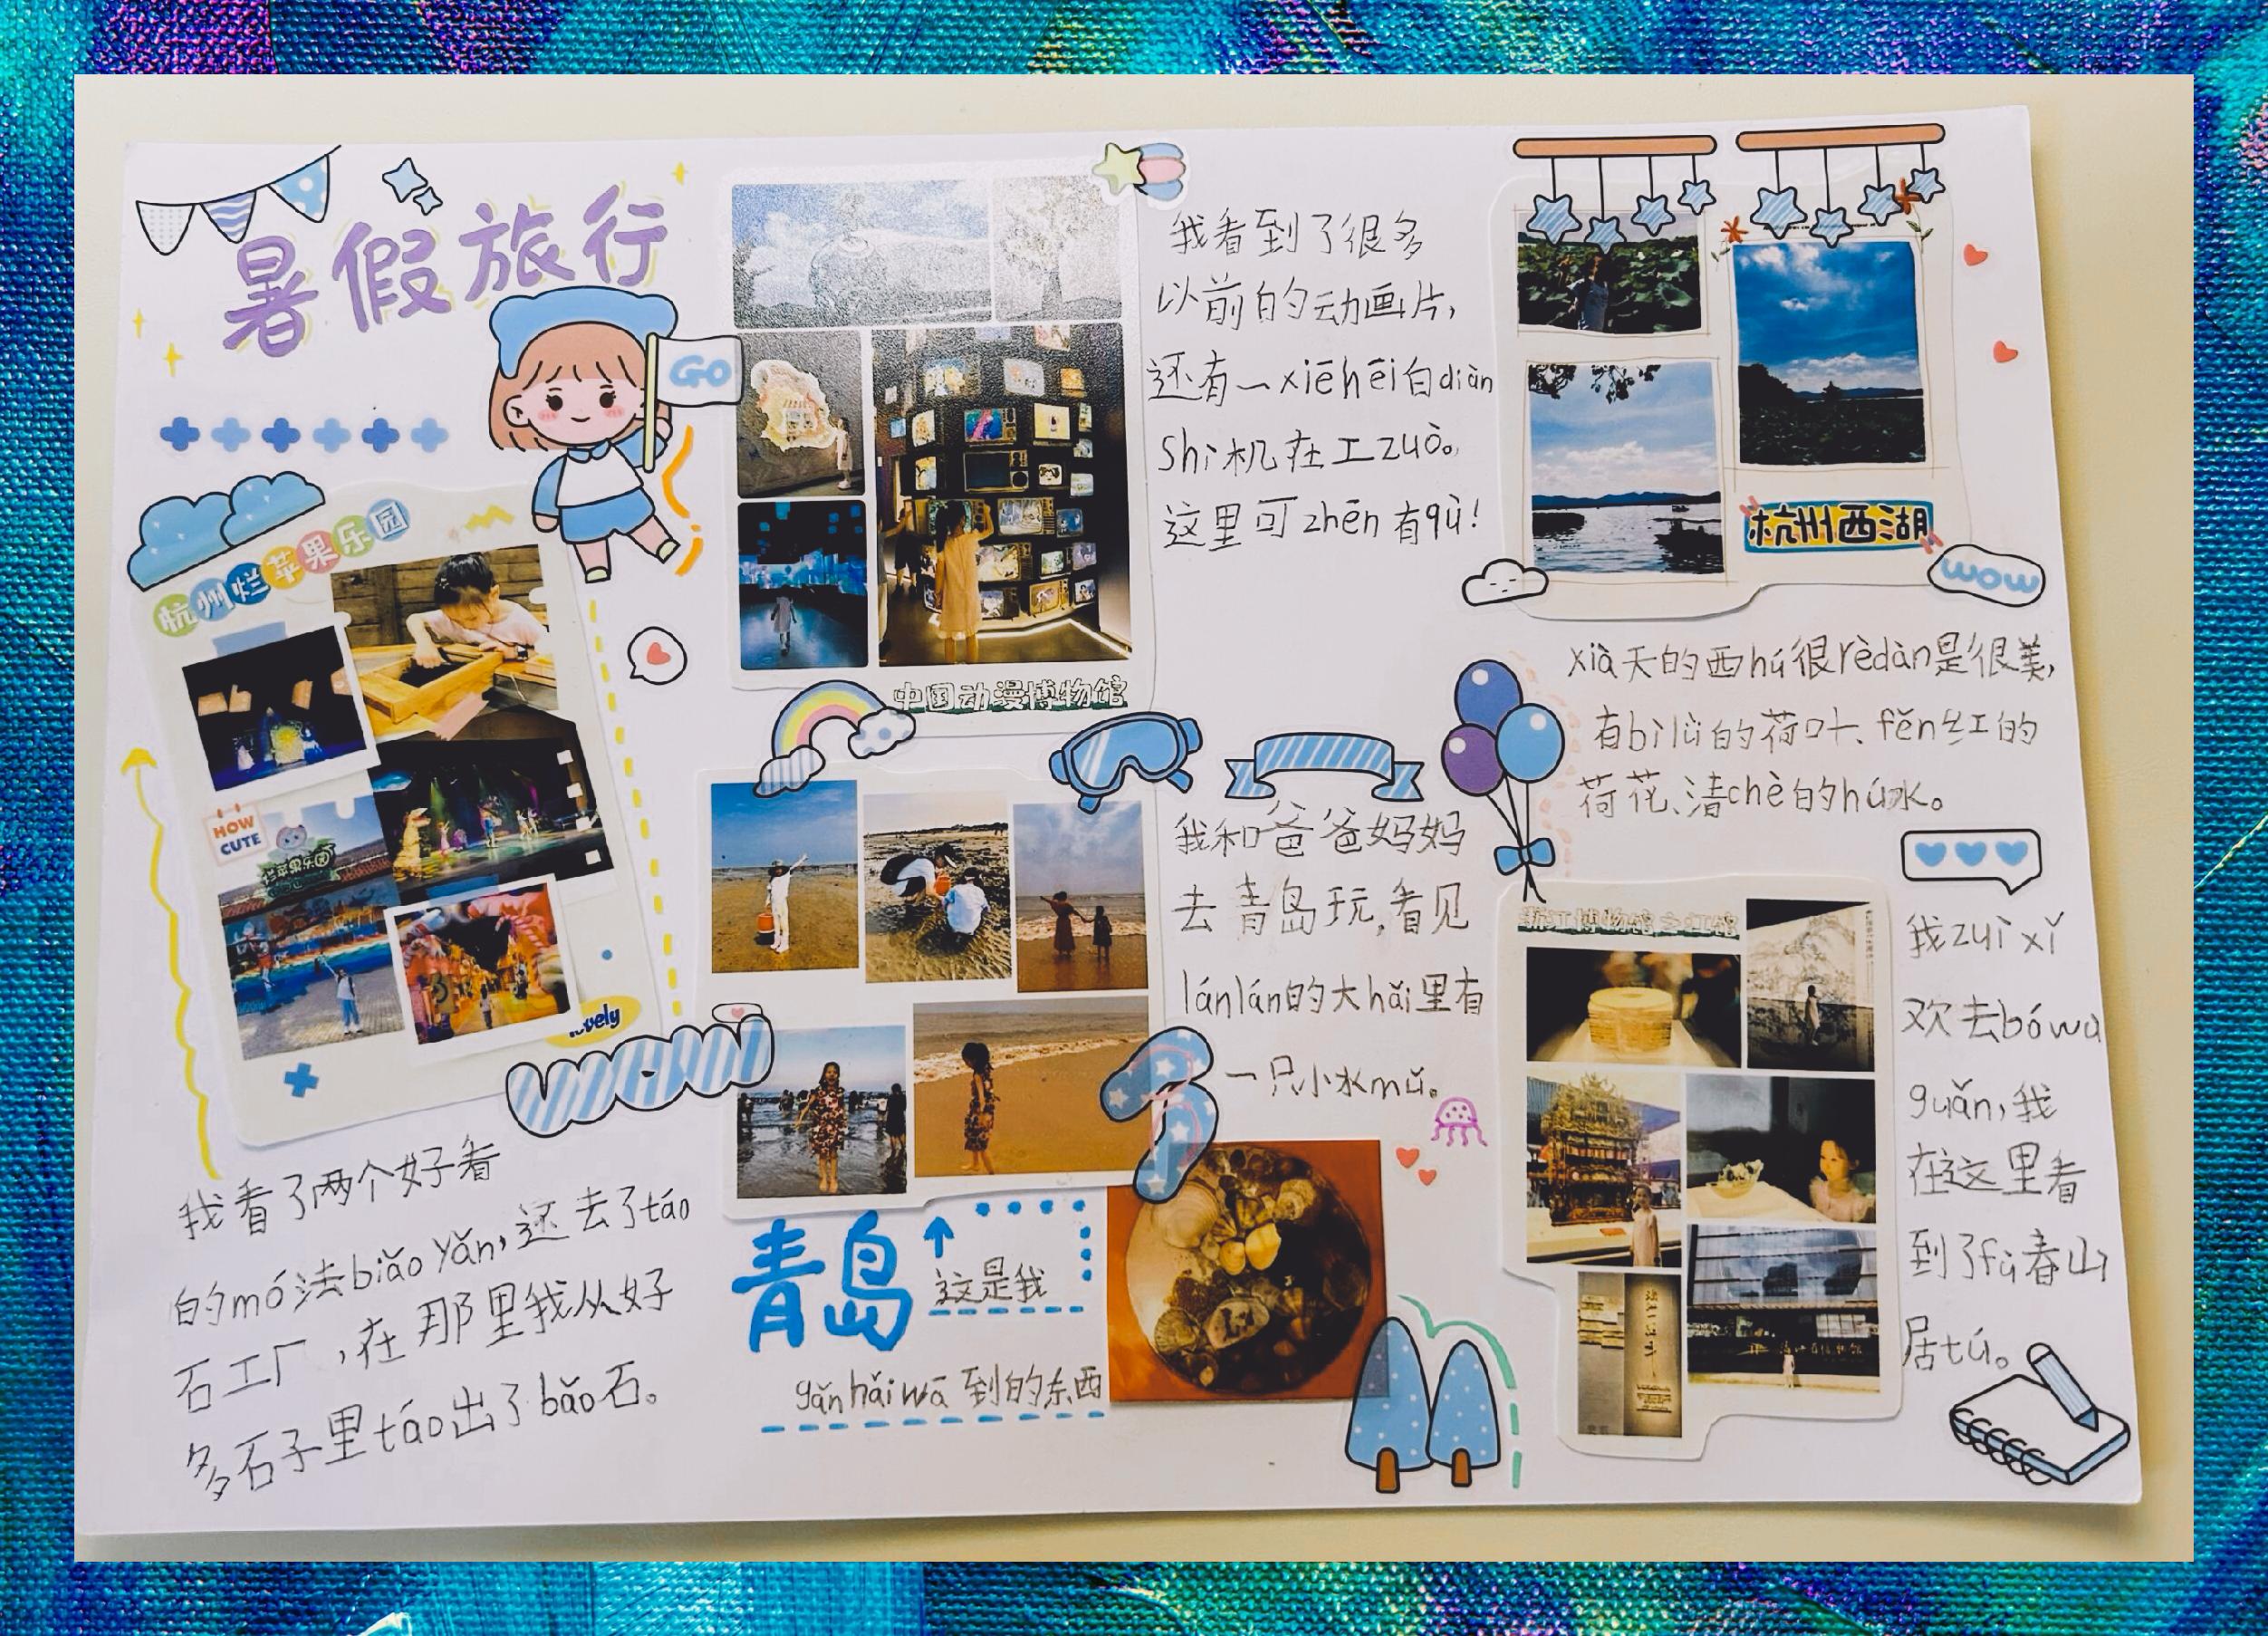 暑假旅行
GO
杭州烂苹果乐园
HOW
CUTE
烂苹果乐园
Lovely
wow
我看了两个好看
的mó法biǎo yǎn,还去了táo
石工厂,在那里我从好
多石子里táo出了bǎo石。
中国动漫博物馆
我看到了很多
以前的动画片,
还有一xiē hēi白diàn
shì机在工zuò。
这里可zhēn有qù!
青岛
这是我
gǎn hǎi wā 到的东西
我和爸爸妈妈
去青岛玩,看见
lánlán的大hǎi里有
一只小水mǔ。
杭州西湖
wow
xià天的西hú很rèdàn是很美,
有bì lǜ的荷叶、fěn红的
荷花、清chè的hú水。
浙江博物馆之江馆
我zuì xǐ
欢去bówù
guǎn,我
在这里看
到了fù春山
居tú。